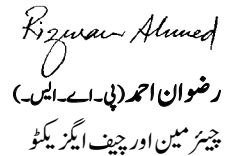 Rizwan Ahmed
رضوان احمد (پی۔اے۔ایس۔)
چیئرمین اور چیف ایگزیکٹو